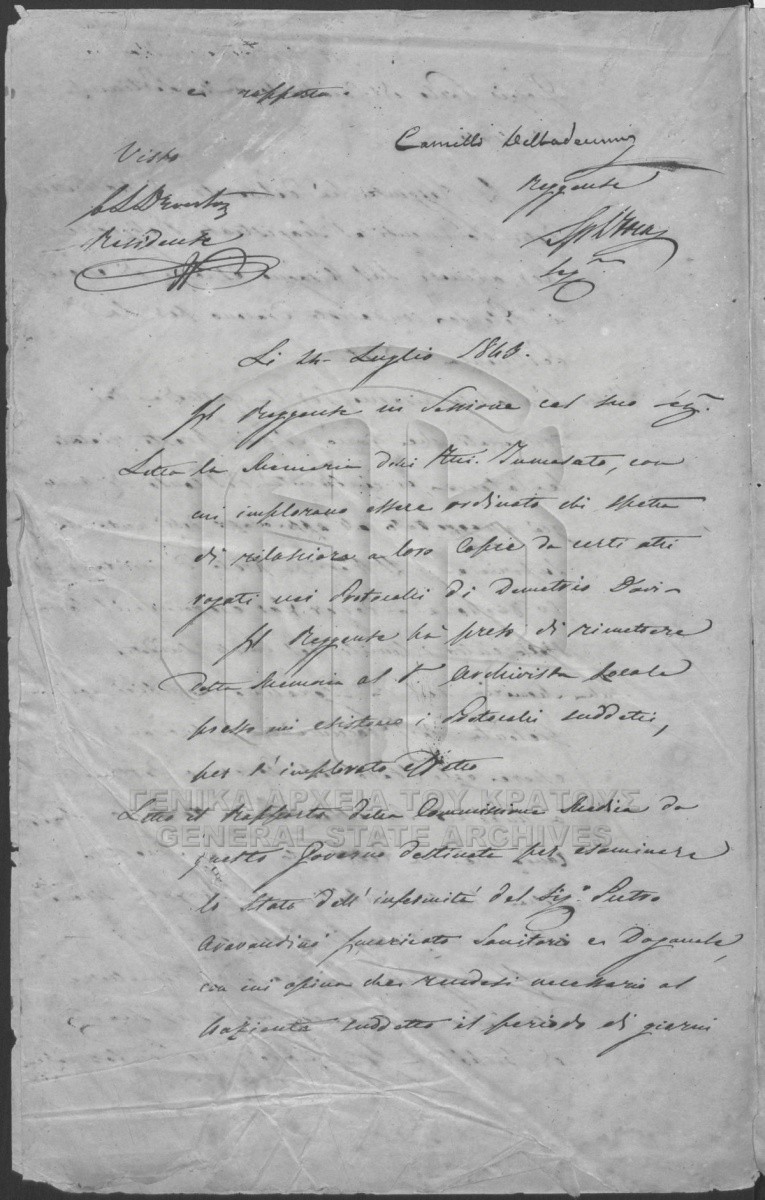 ei rapporto
Visto
Camillo
Reggente
Residente
Seg.
Li 24 Luglio 1843.
Il Reggente in Sessione col suo Seg.
Letta la Memoria dei con
cui implorano essere ordinato chi spetta
di rilasciare a loro Copie da certi atti
rogati nei Protocolli di Demetrio
Il Reggente ha preso di rimettere
detta Memoria al Archivista Locale
presso cui esistono i Protocolli suddetti,
per l'implorato effetto
ΓΕΝΙΚΑ ΑΡΧΕΙΑ ΤΟΥ ΚΡΑΤΟΥΣ
GENERAL STATE ARCHIVES
Letto il Rapporto della Commissione Medica da
questo Governo destinata per esaminare
lo Stato dell'infermità del Sig. Pietro
Aravandinò Incaricato Sanitario e Doganale,
con cui opina che rendesi necessario al
Paziente suddetto il periodo di giorni